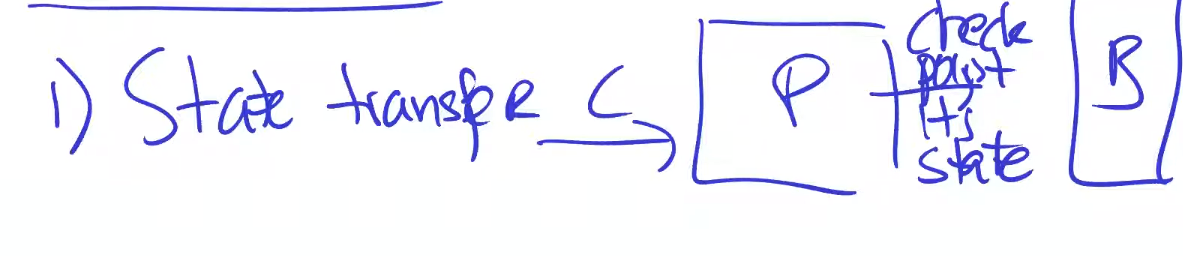 1) State transfer C P check B
point
its
state